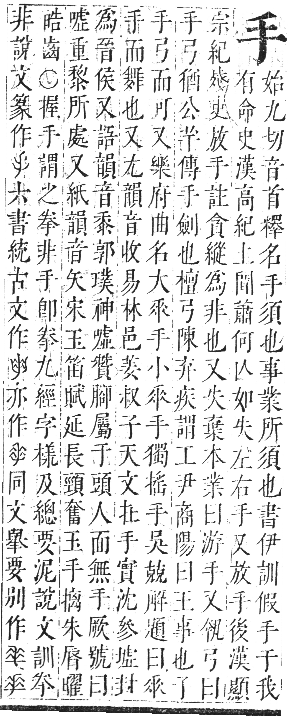 手
始九切音首釋名手須也事業所須也書伊訓假手于我
有命史漢高紀上聞蕭何亾如失左右手又放手後漢顯
宗紀殘吏放手註貪縱爲非也又失棄本業曰游手又佩弓曰
手弓猶公羊傳手劍也檀弓陳弃疾謂工尹商陽曰王事也子
手弓而可又樂府曲名大垂手小垂手獨搖手吳兢解題曰垂
手而舞也又尤韻音收易林邑姜叔子天文在手實沈參墟封
爲晉侯又語韻音黍郭璞神噓贊腳屬于頭人而無手厥號曰
噓重黎所處又紙韻音矢宋玉笛賦延長頸奮玉手摛朱唇曜
皓齒握手謂之拳非手卽拳九經字様及總要泥說文訓拳
非說文篆作六書統古文作亦作同文舉要別作